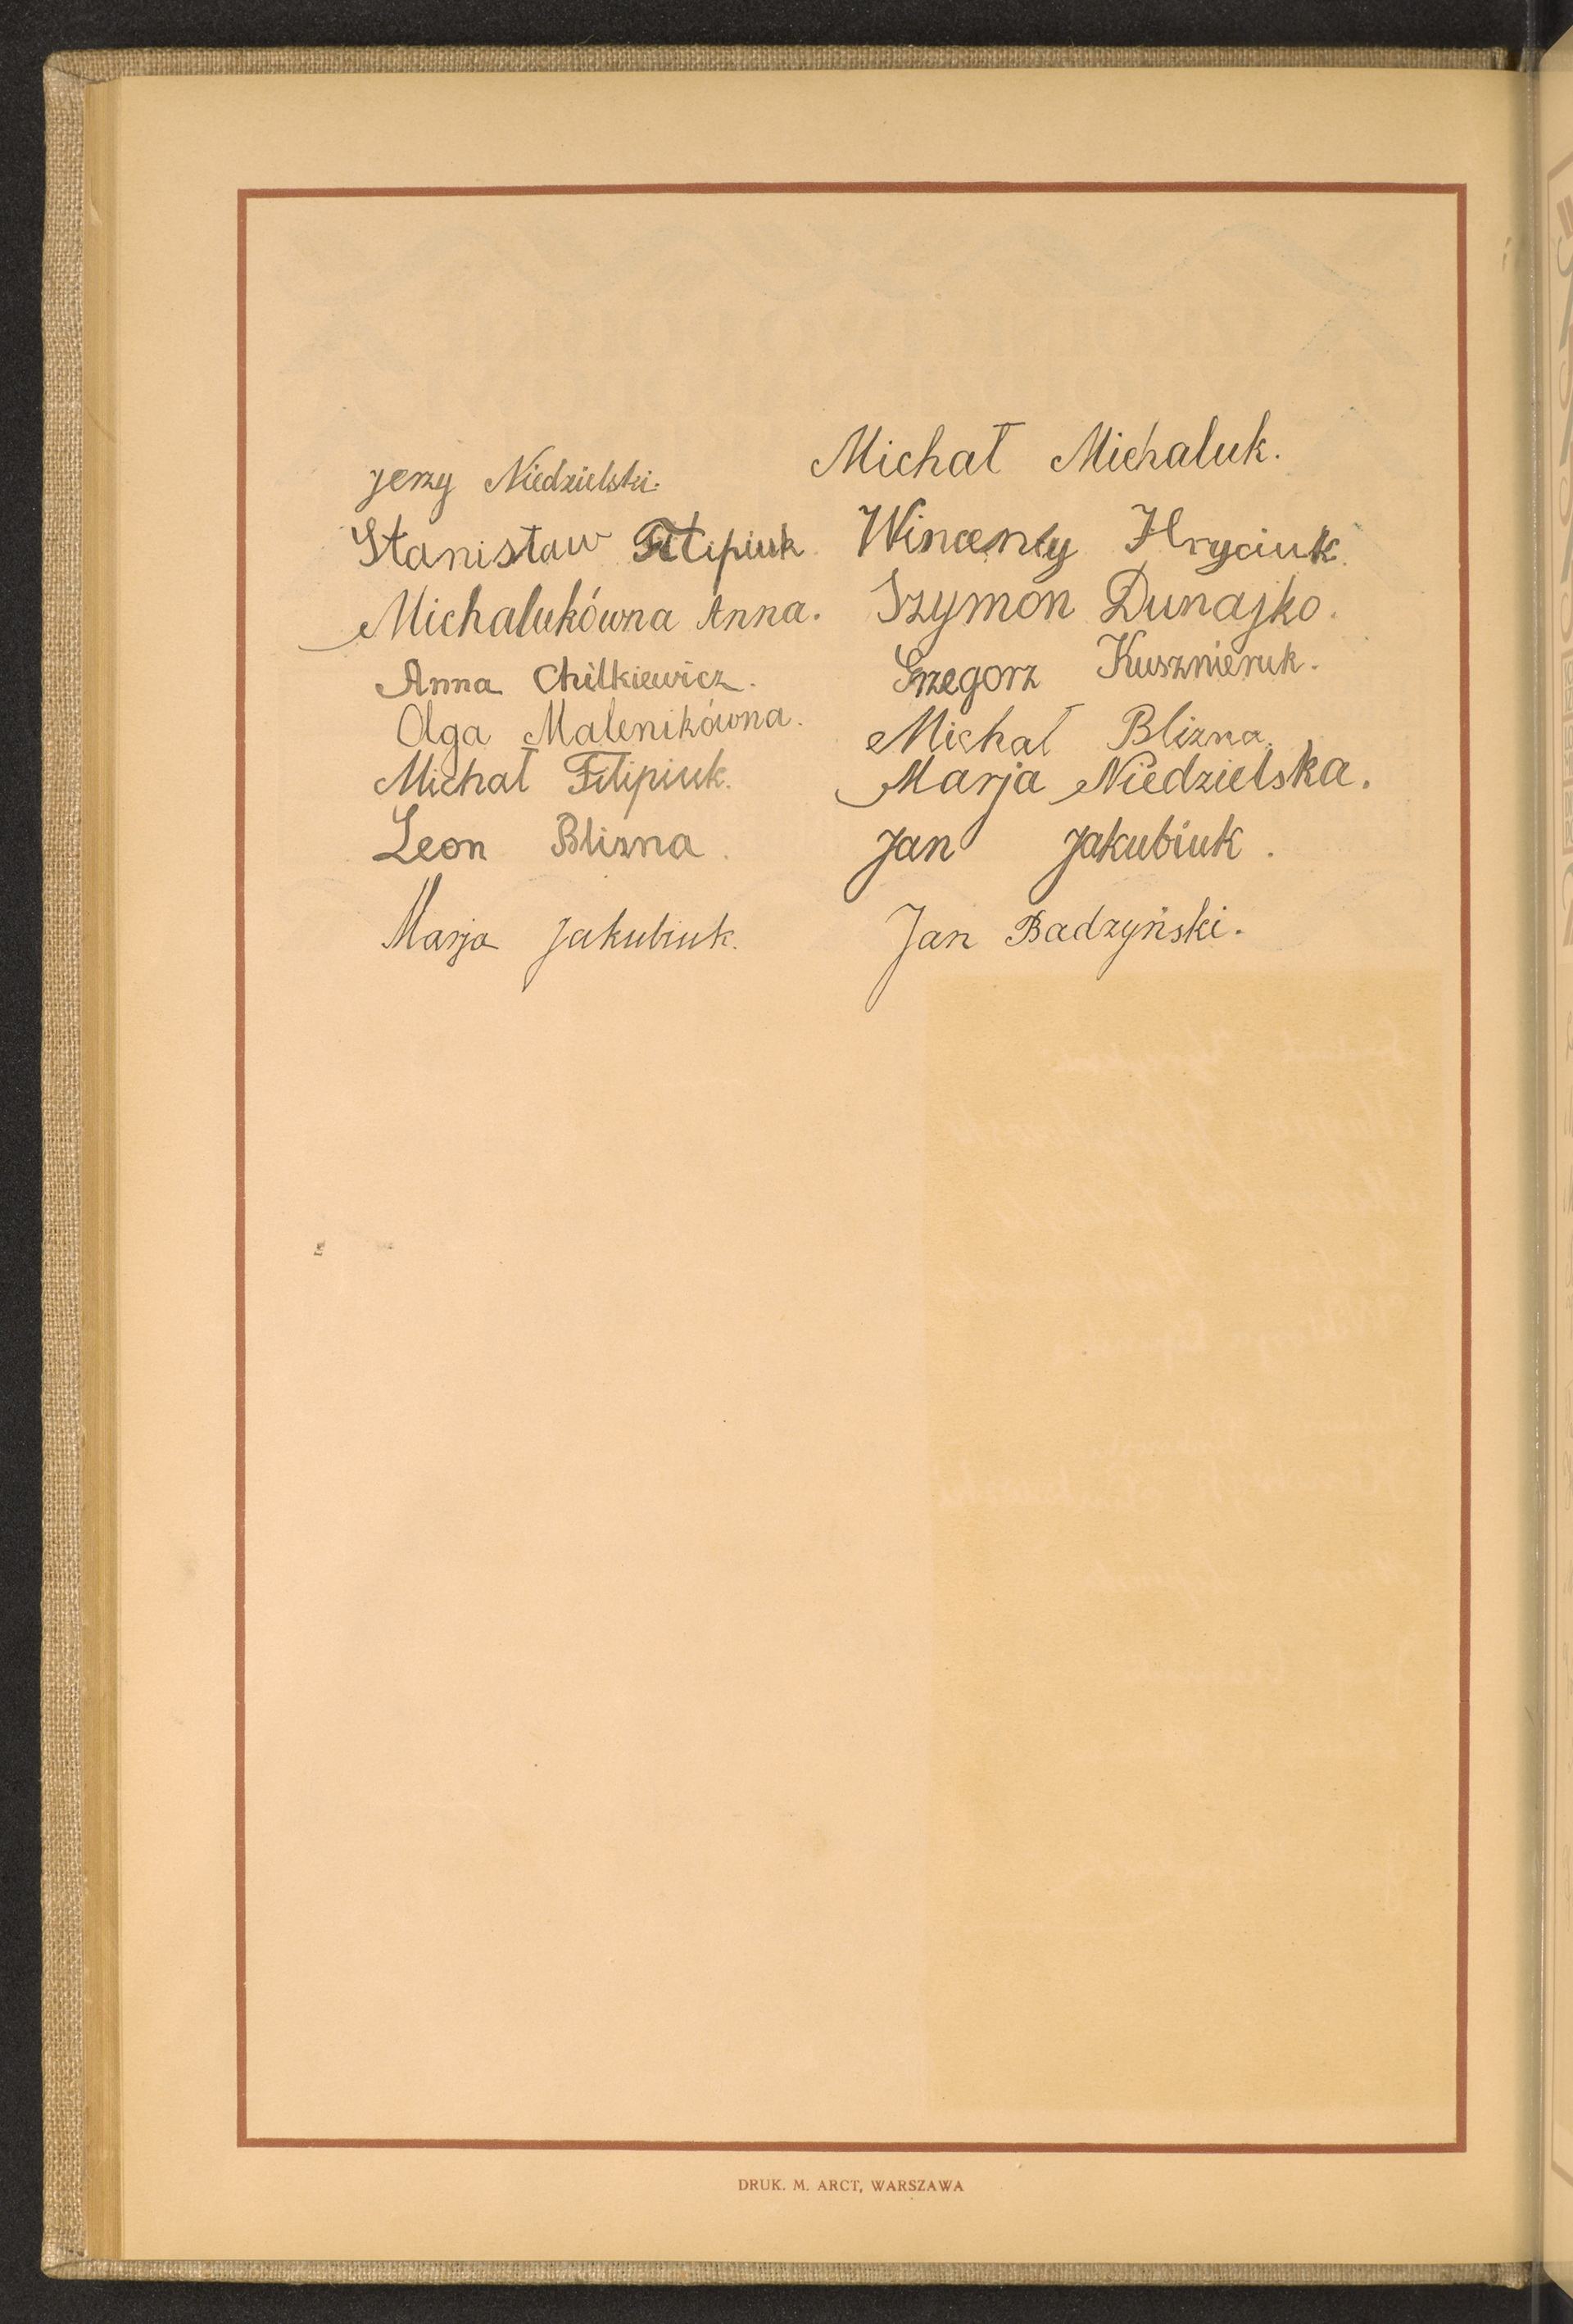 Jerzy Niedzielski.
Stanisław Filipiuk.
Michalukówna Anna.
Anna Chilkiewicz.
Olga Malenikówna.
Michał Filipiuk.
Leon Blizna.
Marja Jakubiuk.
Michał Michaluk.
Wincenty Hryciuk.
Szymon Dunajko.
Grzegorz Kusznieruk.
Michał Blizna.
Marja Niedzielska.
Jan Jakubiuk.
Jan Badzyński.
DRUK. M. ARCT, WARSZAWA